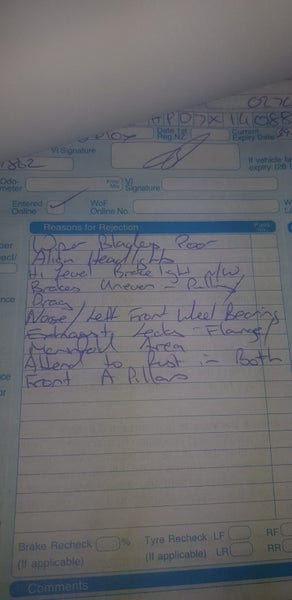 027
Date 1st Reg.NZ
Current Expiry Date
VI Signature
1882
If vehicle fa
expiry (28
Odo-
meter
Km
Mls
VI
Signature
Entered Online
WoF
Online No.
Reasons for Rejection
Pass
Wiper Blades Poor
Align Headlights
Hi Level Brakelight N/W
Brakes Uneven - Pulling/
Drag
Noise/Left Front Wheel Bearing
Exhaust Leaks - Flange/
Manifold Area
Attend to Rust in Both
Front A Pillars
Brake Recheck %
(If applicable)
Tyre Recheck LF RF
(If applicable) LR RR
Comments